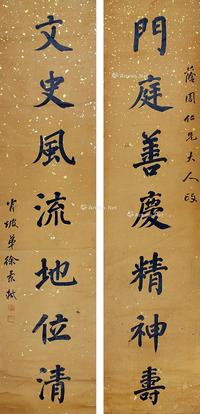 門庭善慶精神壽
蔭周仁兄大人政
文史風流地位清
徐